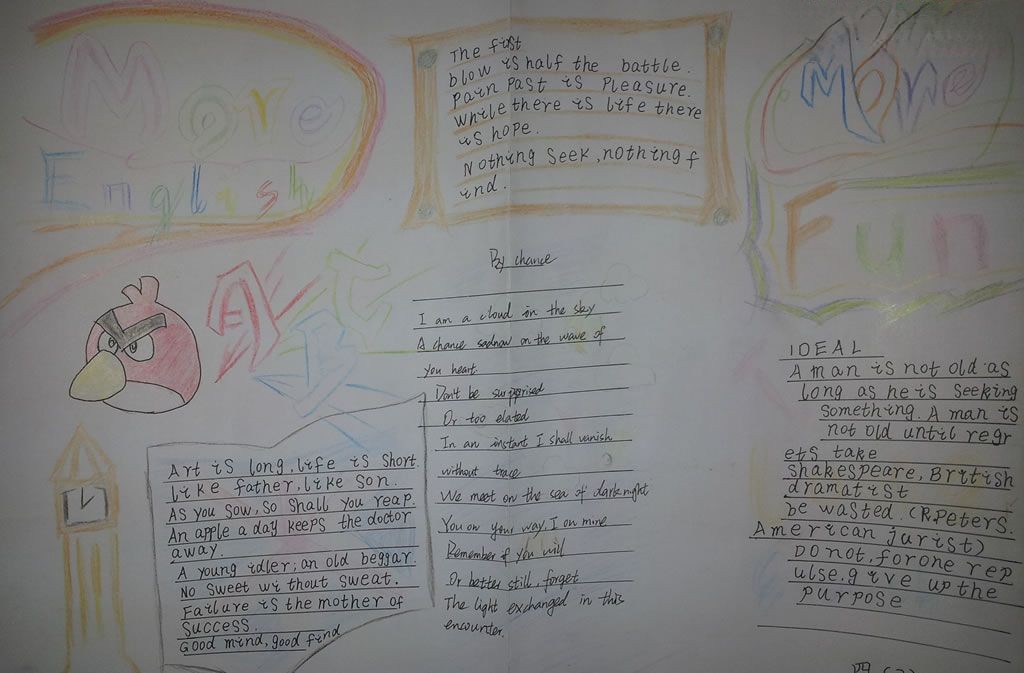 More
English
The first
blow is half the battle.
Pain past is pleasure.
While there is life there
is hope.
Nothing seek, nothing f
ind.
More
Fun
A B C
By chance
I am a cloud in the sky
A chance sadnow on the wave of
you heart.
Don't be surprised
Or too elated
In an instant I shall vanish
without trace
We meet on the sea of dark night
You on your way, I on mine
Remember if you will
Or better still, forget
The light exchanged in this
encounter.
Art is long, life is short.
like father, like son.
As you sow, so shall you reap
An apple a day keeps the doctor
away.
A young idler, an old beggar.
No sweet without sweat.
Failure is the mother of
success.
Good mind, good find
IDEAL
A man is not old as
long as he is seeking
something. A man is
not old until regr
ets take
shakespeare, British
dramatist
be wasted. (R.Peters.
American jurist)
Do not, for one rep
ulse, give up the
purpose